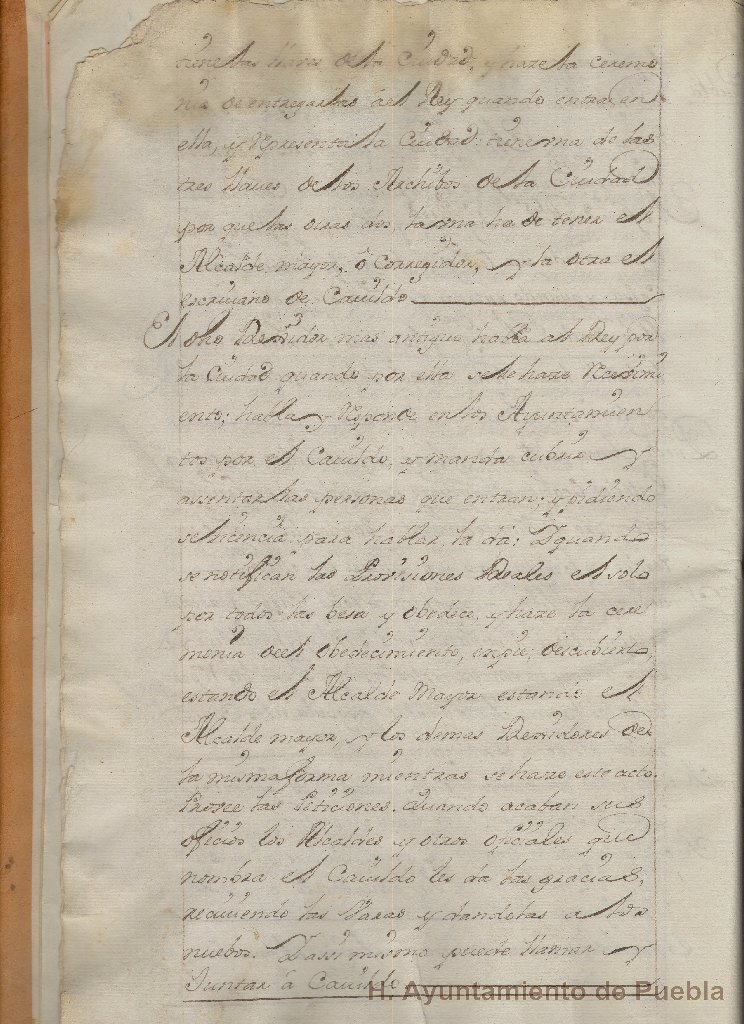 tiene las llaves de la Ciudad, y haze la ceremo
nia de entregarlas àel Rey quando entra en
ella, y Representa la Ciudad: tiene una de las
tres llaves de los Archibos de la Ciudad
por que las otras dos, la una ha de tener el
Alcalde mayor, ô Corregidor, y la otra el
escriuano de Cauildo
El dho Regidor mas antiguo habla al Rey por
la Ciudad quando por ella se le haze Recivimi
ento; habla y Responde en los Ayuntamien
tos por el Cauildo, y manda cubrir y
assentar las personas que entran; y pidiendo
se licencia para hablar, la dá: Y quando
se notifican las Provisiones Reales el solo
por todos las besa y obedece, y haze la cere
monia del obedecimiento, en pie, descubierto,
estando el Alcalde Mayor estando el
Alcalde mayor, y los demas Regidores de
la misma forma mientras se haze este acto.
Provee las Peticiones. Quando acaban sus
oficios los Alcaldes y otros oficiales que
nombra el Cauildo les da las gracias,
reciuiendo las Varas y dandolas a los
nuebos. Y assi mismo puede llamar y
Juntar á Cauildo
H. Ayuntamiento de Puebla